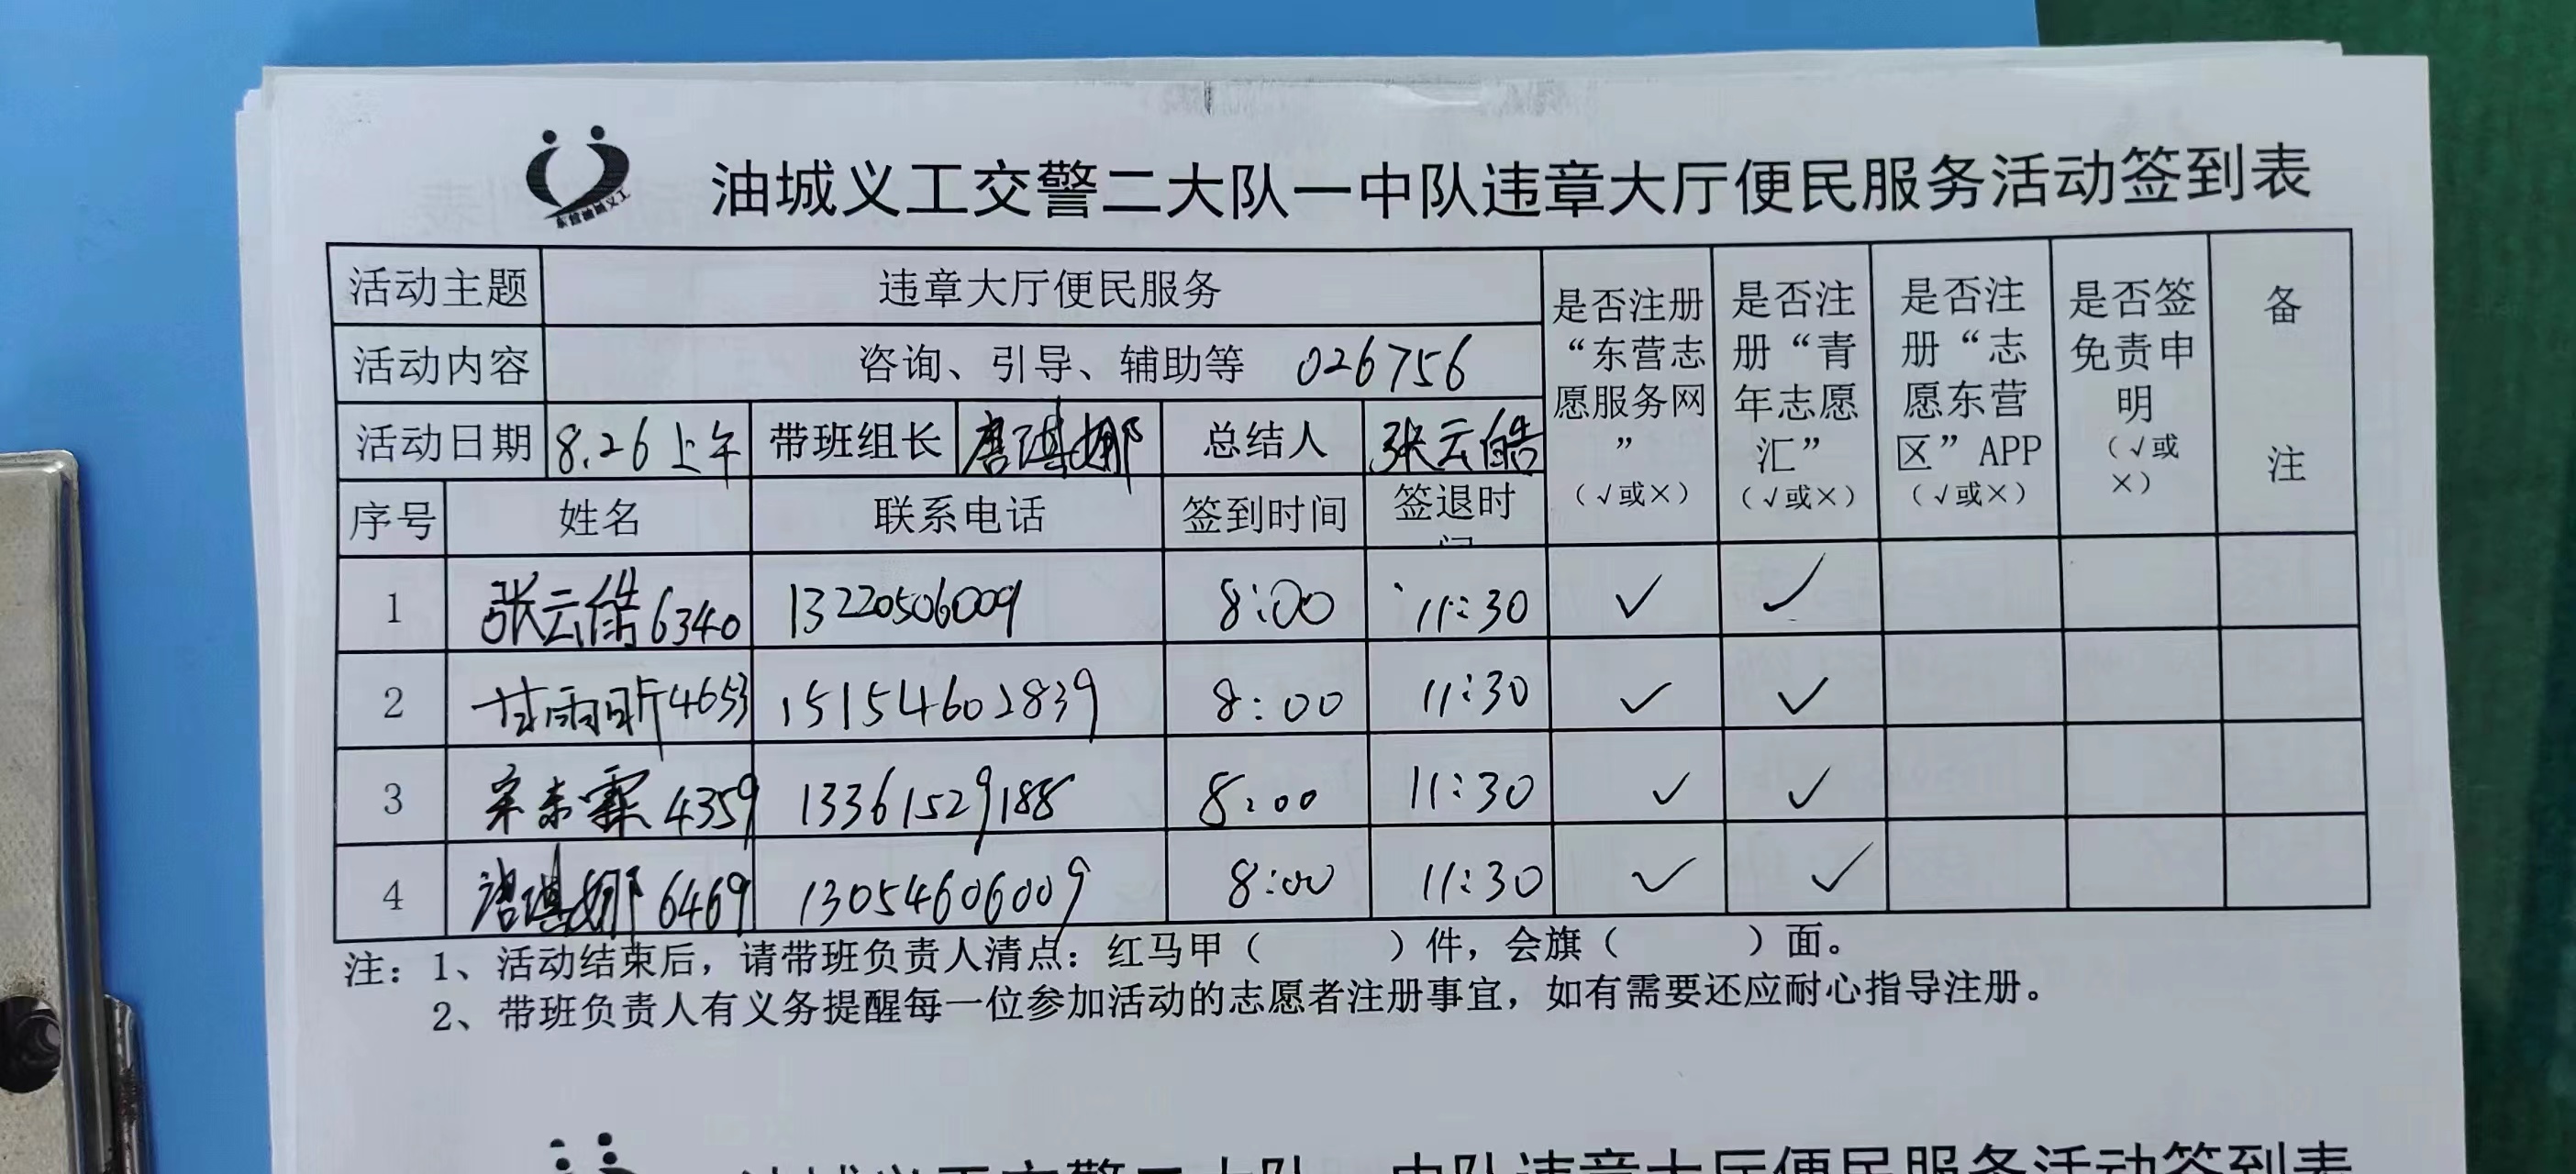 东营油城义工
油城义工交警二大队一中队违章大厅便民服务活动签到表
活动主题 违章大厅便民服务 是否注册“东营志愿服务网”（√或×） 是否注册“青年志愿汇”（√或×） 是否注册“志愿东营区”APP（√或×） 是否签免责申明（√或×） 备注
活动内容 咨询、引导、辅助等 026756
活动日期 8.26上午 带班组长 唐琪娜 总结人 张云皓
序号 姓名 联系电话 签到时间 签退时间
1 张云皓 6340 13220506009 8:00 11:30 ✓ ✓
2 甘雨昕 4653 15154602839 8:00 11:30 ✓ ✓
3 4359 13361529188 8:00 11:30 ✓ ✓
4 唐琪娜 6469 13054606009 8:00 11:30 ✓ ✓
注：1、活动结束后，请带班负责人清点：红马甲（ ）件，会旗（ ）面。
2、带班负责人有义务提醒每一位参加活动的志愿者注册事宜，如有需要还应耐心指导注册。
油城义工交警二大队一中队违章大厅便民服务活动签到表